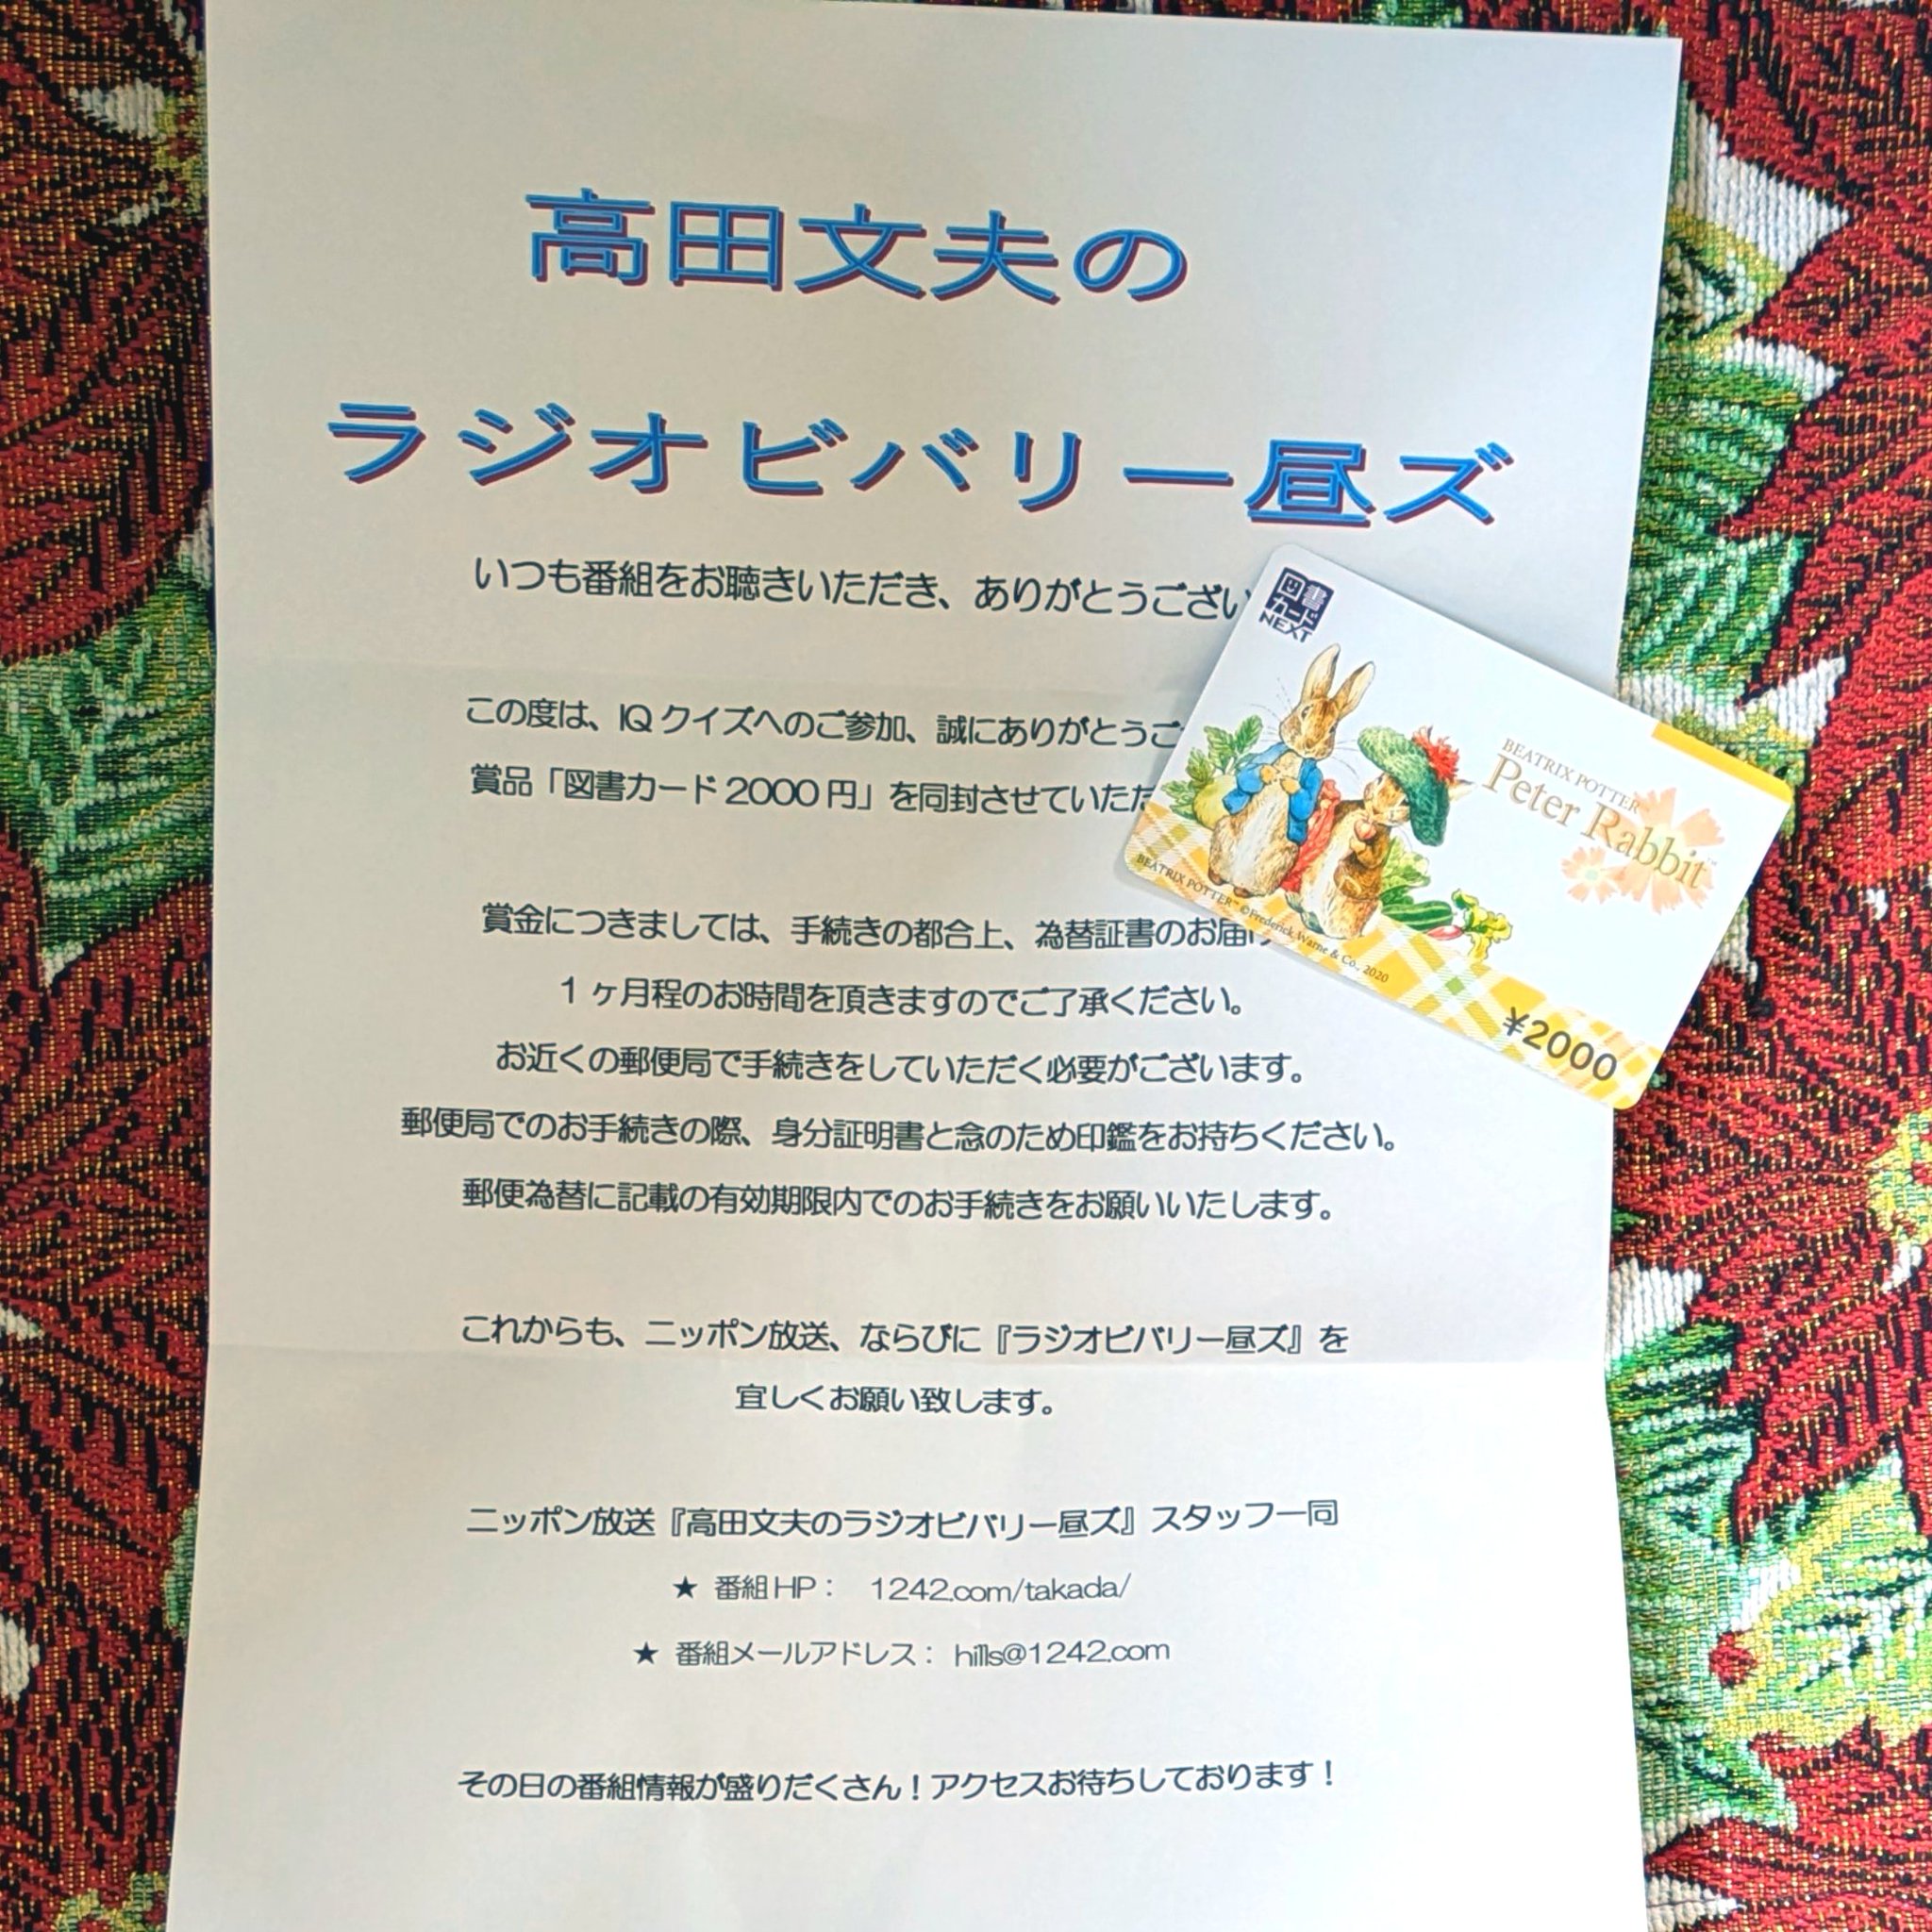 高田文夫の
ラジオビバリー昼ズ
いつも番組をお聴きいただき、ありがとうござい
この度は、IQクイズへのご参加、誠にありがとうご
賞品「図書カード2000円」を同封させていただ
賞金につきましては、手続きの都合上、為替証書のお届け
1ヶ月程のお時間を頂きますのでご了承ください。
お近くの郵便局で手続きをしていただく必要がございます。
郵便局でのお手続きの際、身分証明書と念のため印鑑をお持ちください。
郵便為替に記載の有効期限内でのお手続きをお願いいたします。
これからも、ニッポン放送、ならびに『ラジオビバリー昼ズ』を
宜しくお願い致します。
ニッポン放送『高田文夫のラジオビバリー昼ズ』スタッフ一同
★ 番組HP： 1242.com/takada/
★ 番組メールアドレス： hills@1242.com
その日の番組情報が盛りだくさん！アクセスお待ちしております！
図書
カード
NEXT
BEATRIX POTTER
Peter Rabbit™
BEATRIX POTTER™ ©Frederick Warne & Co., 2020
¥2000